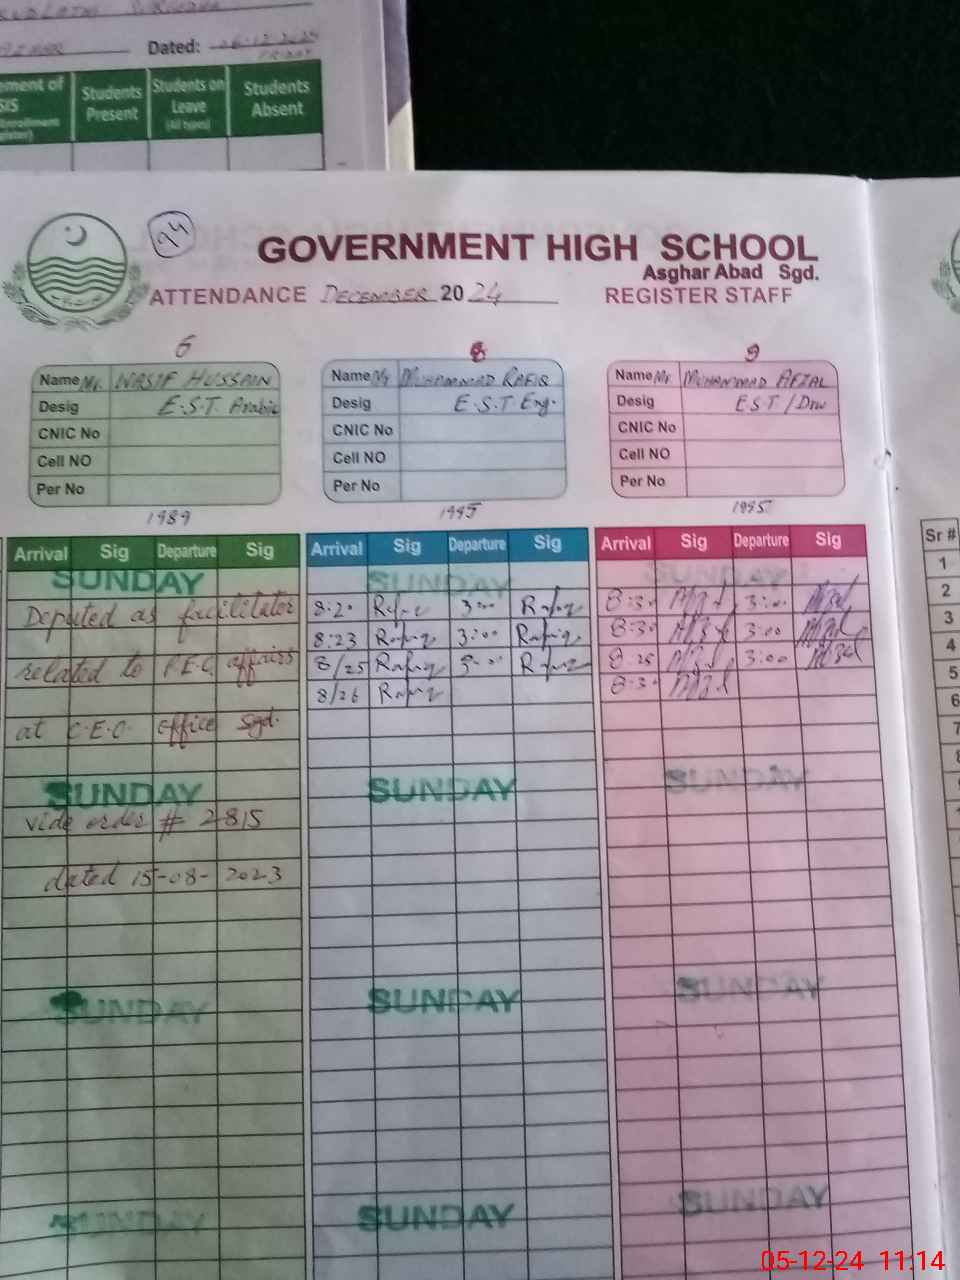 Dated: 06.12.2024
Students Present
Students on Leave (All types)
Students Absent
24
GOVERNMENT HIGH SCHOOL
Asghar Abad Sgd.
ATTENDANCE DECEMBER 2024 REGISTER STAFF
6 8 9
Name Mr. WASIF HUSSAIN
Desig E.S.T. Arabic
CNIC No
Cell NO
Per No
1989
Name Mr MUHAMMAD RAFIQ
Desig E.S.T Eng.
CNIC No
Cell NO
Per No
1995
Name Mr. MUHAMMAD AFZAL
Desig E.S.T/Drw
CNIC No
Cell NO
Per No
1995
Arrival Sig Departure Sig
SUNDAY
Deputed as facilitator
related to P.E.C affairs
at C.E.O. office Sgd.
SUNDAY
vide order # 2815
dated 15-08-2023
SUNDAY
SUNDAY
Arrival Sig Departure Sig
SUNDAY
8:20 Rafiq 3:00 Rafiq
8:23 Rafiq 3:00 Rafiq
8/25 Rafiq 3:00 Rafiq
8/26 Rafiq
SUNDAY
SUNDAY
SUNDAY
Arrival Sig Departure Sig
SUNDAY
8:30 Afzal 3:00 Afzal
8:30 Afzal 3:00 Afzal
8:25 Afzal 3:00 Afzal
8:30 Afzal
SUNDAY
SUNDAY
SUNDAY
Sr #
1
2
3
4
5
6
7
05-12-24 11:14